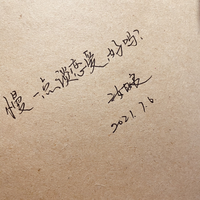 慢一点谈恋爱,好吗?
2021.7.6